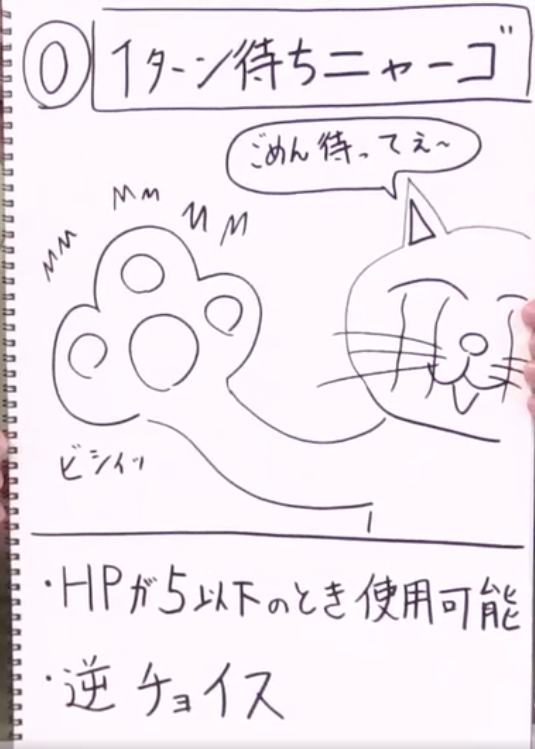 0
1ターン待ちニャーゴ
ごめん待ってぇ~
ビシィッ
・HPが5以下のとき使用可能
・逆チョイス